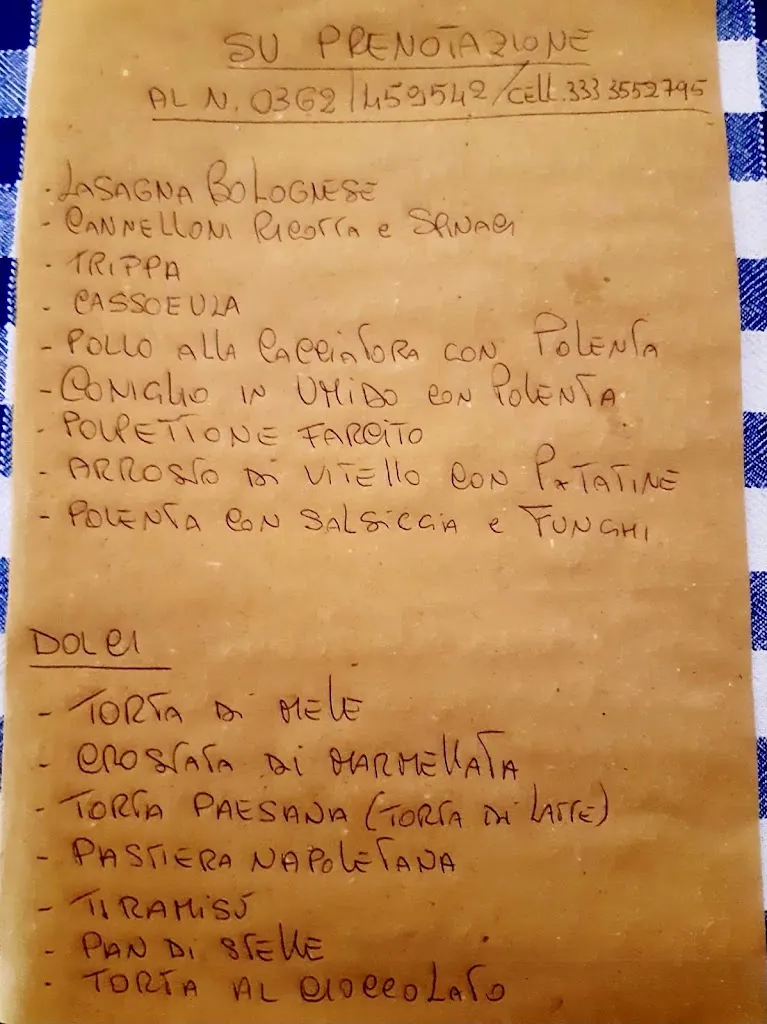 SU PRENOTAZIONE
AL N. 0362/459542/CELL.333 3552795
- LASAGNA BOLOGNESE
- CANNELLONI RICOTTA e SPINACI
- TRIPPA
- CASSOEULA
- POLLO ALLA CACCIATORA CON POLENTA
- CONIGLIO IN UMIDO CON POLENTA
- POLPETTONE FARCITO
- ARROSTO DI VITELLO CON PATATINE
- POLENTA CON SALSICCIA e FUNGHI
DOLCI
- TORTA DI MELE
- CROSTATA DI MARMELLATA
- TORTA PAESANA (TORTA DI LATTE)
- PASTIERA NAPOLETANA
- TIRAMISÙ
- PAN DI STELLE
- TORTA AL CIOCCOLATO